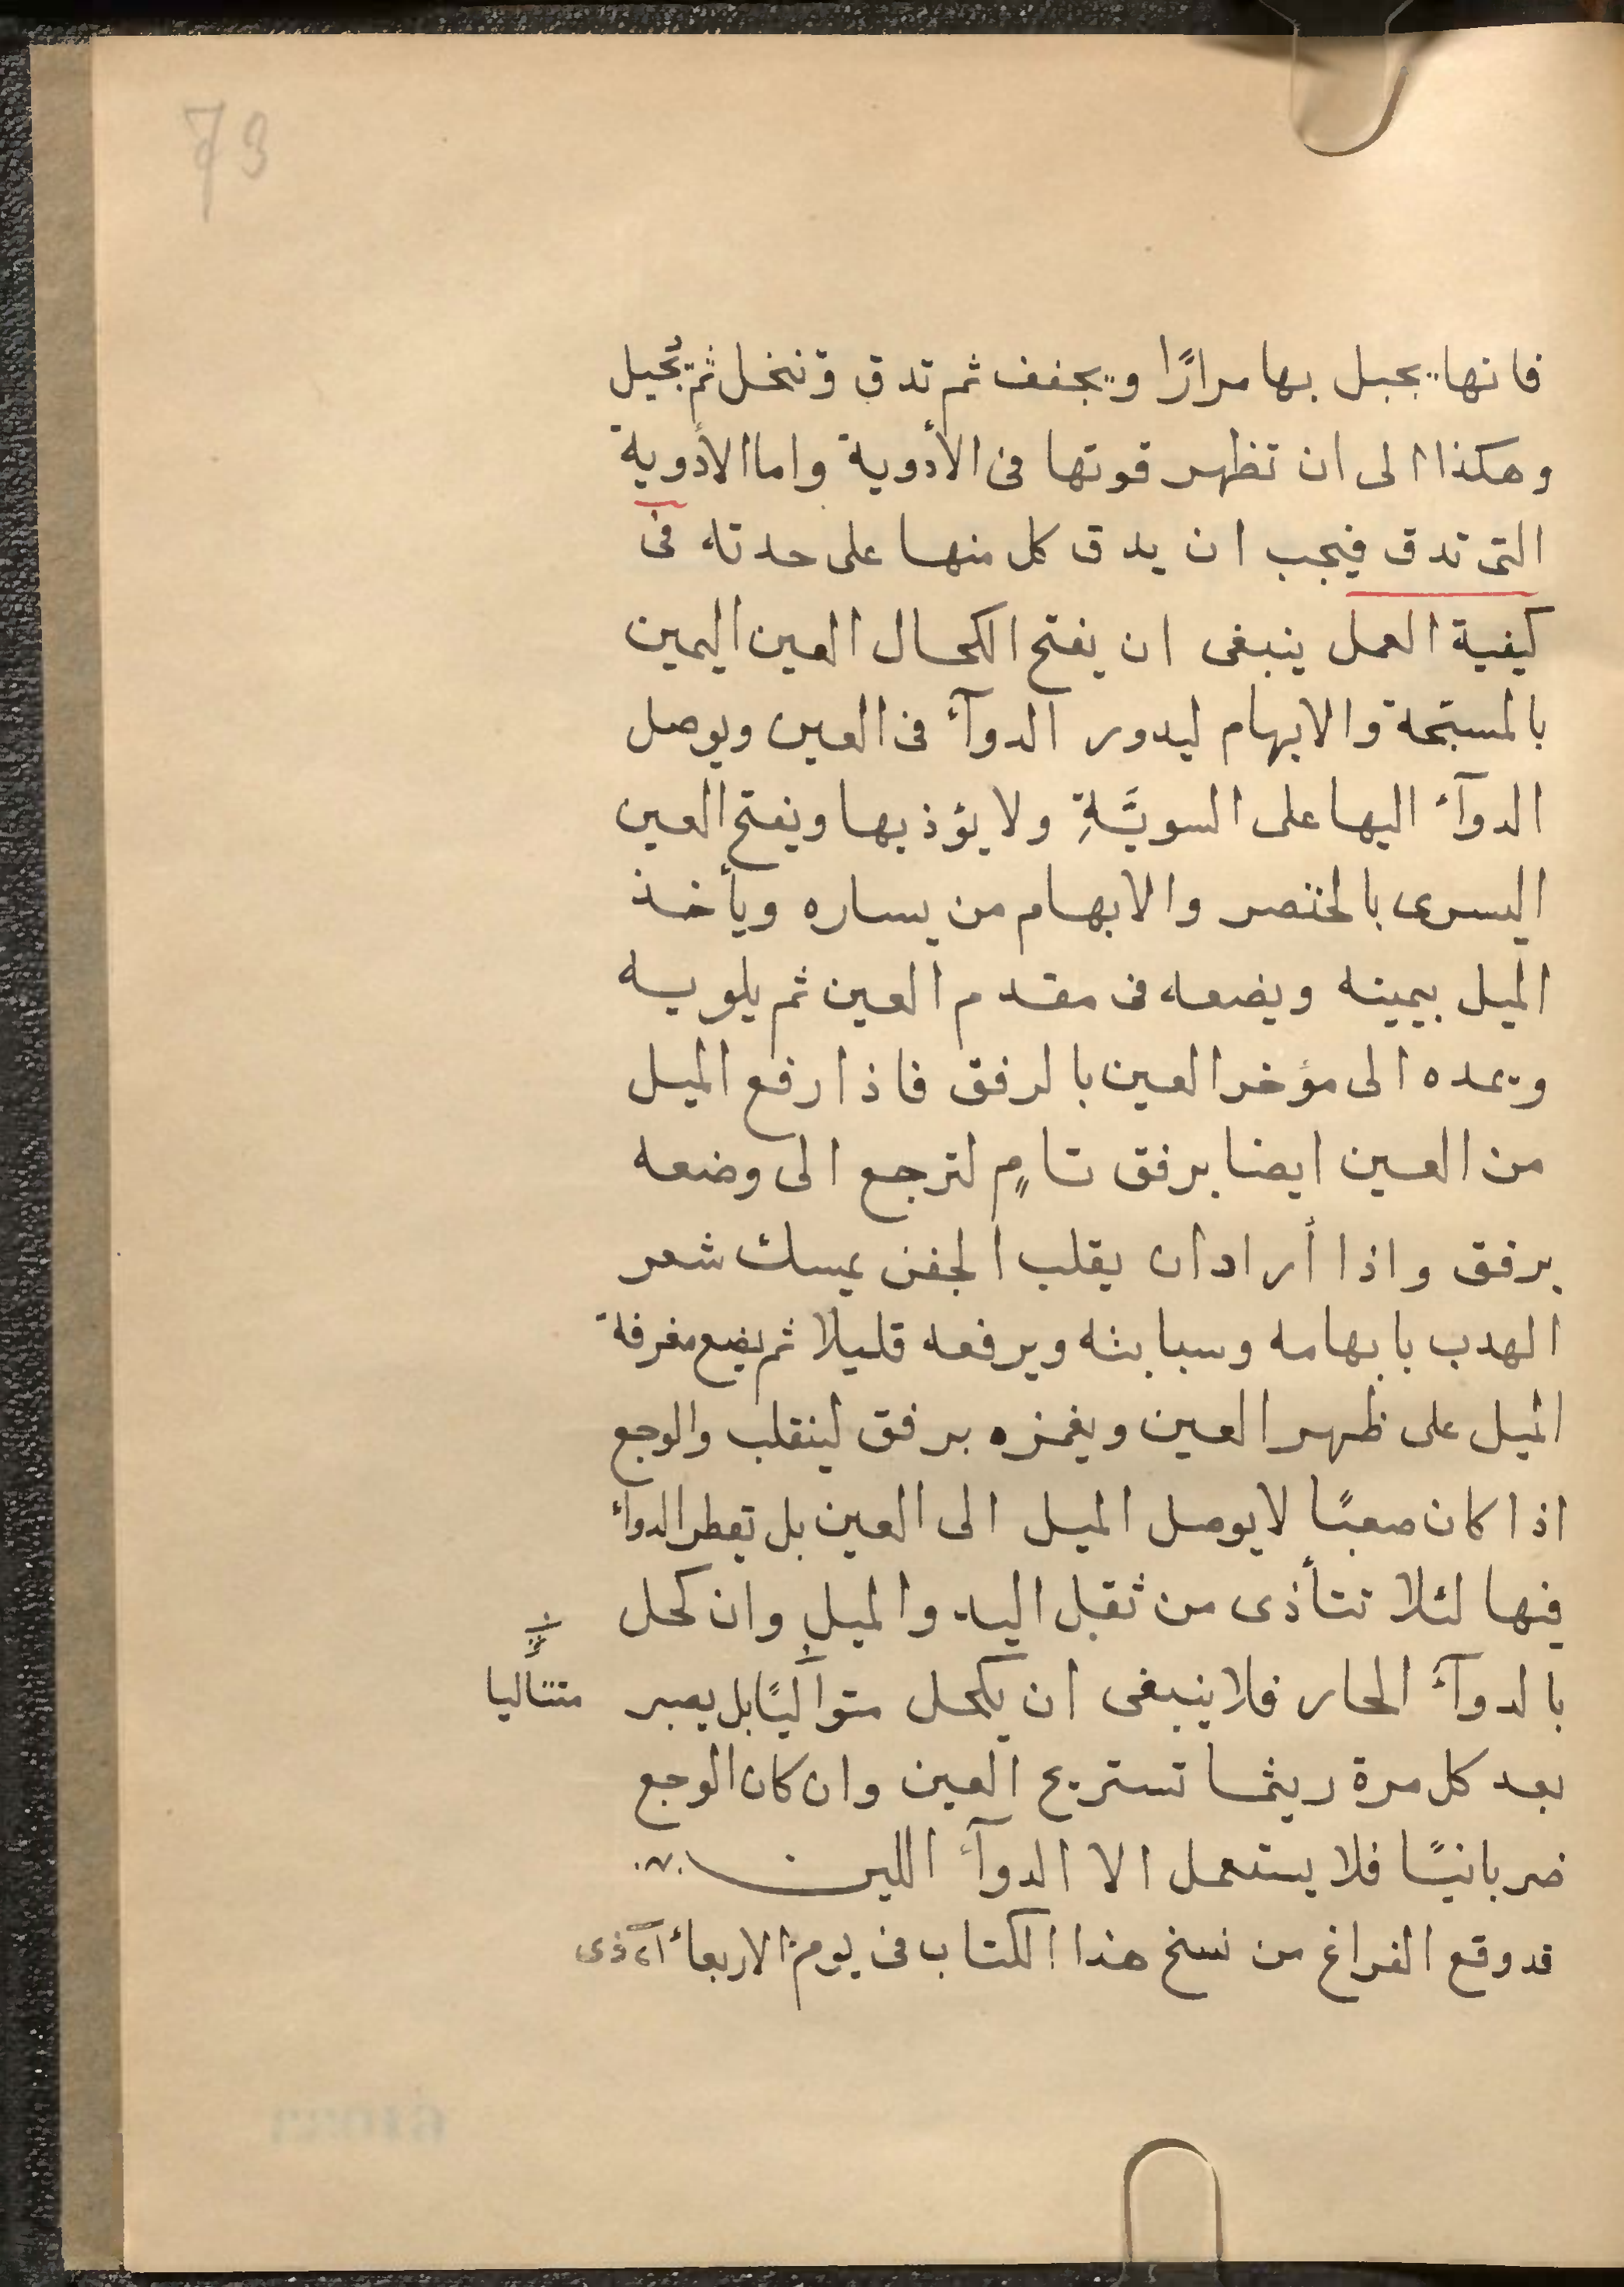 73
فانها يجبل بها مرارًا ويجفف ثم تدق وتنخل ثم تجبل
وهكذا الى ان تظهر قوتها فى الأدوية واما الأدوية
التى تدق فيجب ان يدق كل منها على حدته فى
كيفية العمل ينبغى ان يفتح الكحال العين اليمين
بالمسبّحة والابهام ليدور الدوآء فى العين ويوصل
الدوآء اليها على السويَّةِ ولا يؤذيها ويفتح العين
اليسرى بالخنصر والابهام من يساره ويأخذ
الميل بيمينه ويضعه فى مقدم العين ثم يلويه
ويمده الى مؤخر العين بالرفق فاذا رفع الميل
من العين ايضا برفق تامٍ لترجع الى وضعه
برفق واذا أراد ان يقلب الجفن يمسك شعر
الهدب بابهامه وسبابته ويرفعه قليلا ثم يضع مغرفة
الميل على ظهر العين ويغمزه برفق لينقلب والوجع
اذا كان صعبًا لا يوصل الميل الى العين بل تقطر الدوآء
فيها لئلا تتأذى من ثقل اليد والميل وان كحل
بالدوآء الحار فلا ينبغى ان يكحل متواليًا بل يصبر
متتاليا
بعد كل مرة ريثما تستريح العين وان كان الوجع
ضربانيًا فلا يستعمل الا الدوآء اللين
قد وقع الفراغ من نسخ هذا الكتاب فى يوم الاربعاء ذى